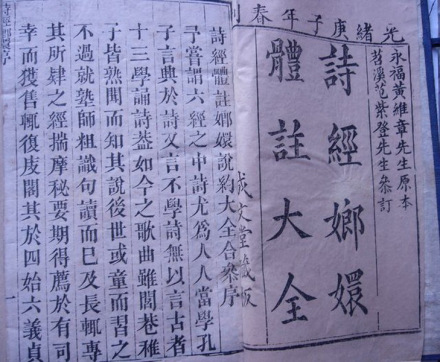 光緒庚子年春刊
永福黃維章先生原本
苕溪范紫登先生參訂
詩經嫏嬛
體註大全
成文堂藏版
詩經體註嫏嬛說約大全合參序
予嘗謂六經之中詩尤為人人當學孔
子言興於詩又言不學詩無以言古者
十三學誦詩蓋如今之歌曲雖閭巷稚
子皆熟聞而知其說後世或童而習之
不過就塾師粗識句讀而已及長輒專
其所肄之經揣摩秘要期得薦於有司
幸而獲售輒復庋閣其於四始六義貞
一